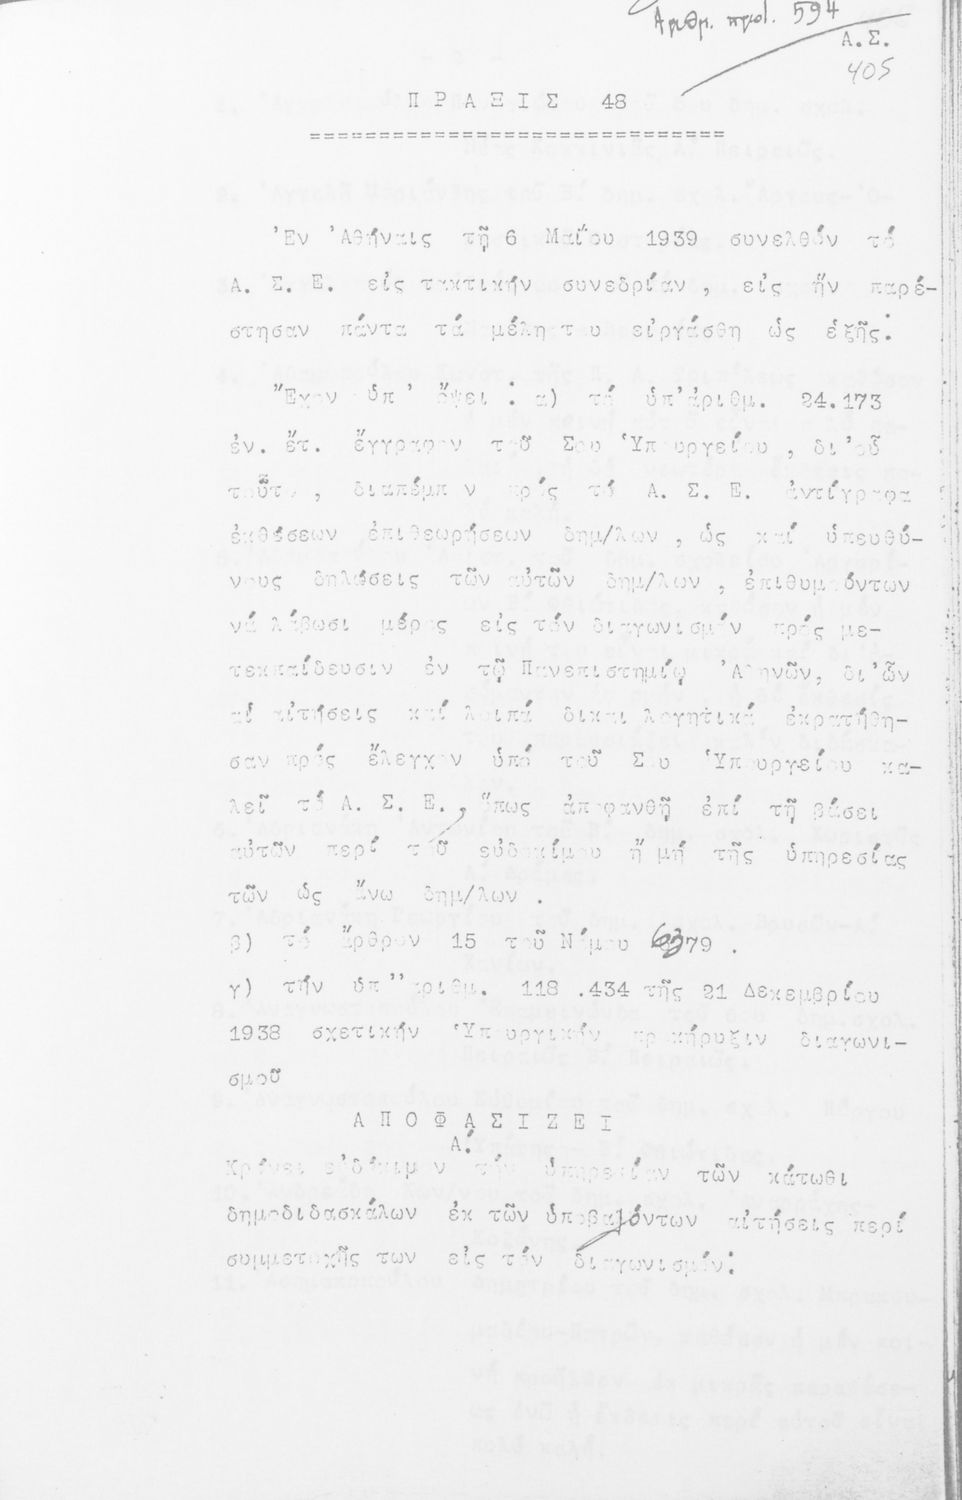 Αριθ. πρωτ. 594
Α.Σ.
405
ΠΡΑΞΙΣ 48
==============================
Ἐν Ἀθήναις τῇ 6 Μαΐου 1939 συνελθόν τό
Α. Σ. Ε. εἰς τακτικήν συνεδρίαν, εἰς ἥν παρέ-
στησαν πάντα τά μέλη του εἰργάσθη ὡς ἑξῆς:
Ἔχον ὑπ' ὄψει : α) τό ὑπ' ἀριθμ. 24.173
ἐν. ἔτ. ἔγγραφον τοῦ Σου Ὑπουργείου, δι' οὗ
τοῦτο, διαπέμπον πρός τό Α. Σ. Ε. ἀντίγραφα
ἐκθέσεων ἐπιθεωρήσεων δημ/λων, ὡς καί ὑπευθύ-
νους δηλώσεις τῶν αὐτῶν δημ/λων, ἐπιθυμούντων
νά λάβωσι μέρος εἰς τόν διαγωνισμόν πρός με-
τεκπαίδευσιν ἐν τῷ Πανεπιστημίῳ Ἀθηνῶν, δι' ὧν
αἱ αἰτήσεις καί λοιπά δικαιολογητικά ἐκρατήθη-
σαν πρός ἔλεγχον ὑπό τοῦ Σου Ὑπουργείου κα-
λεῖ τό Α. Σ. Ε., ὅπως ἀποφανθῇ ἐπί τῇ βάσει
αὐτῶν περί τοῦ εὐδοκίμου ἤ μή τῆς ὑπηρεσίας
τῶν ὡς ἄνω δημ/λων .
β) τό ἄρθρον 15 τοῦ Νόμου 6379 .
γ) τήν ὑπ' ἀριθμ. 118.434 τῆς 21 Δεκεμβρίου
1938 σχετικήν Ὑπουργικήν προκήρυξιν διαγωνι-
σμοῦ
ΑΠΟΦΑΣΙΖΕΙ
Α΄.
Κρίνει εὐδόκιμον τήν ὑπηρεσίαν τῶν κάτωθι
δημοδιδασκάλων ἐκ τῶν ὑποβαλόντων αἰτήσεις περί
συμμετοχῆς των εἰς τόν διαγωνισμόν: